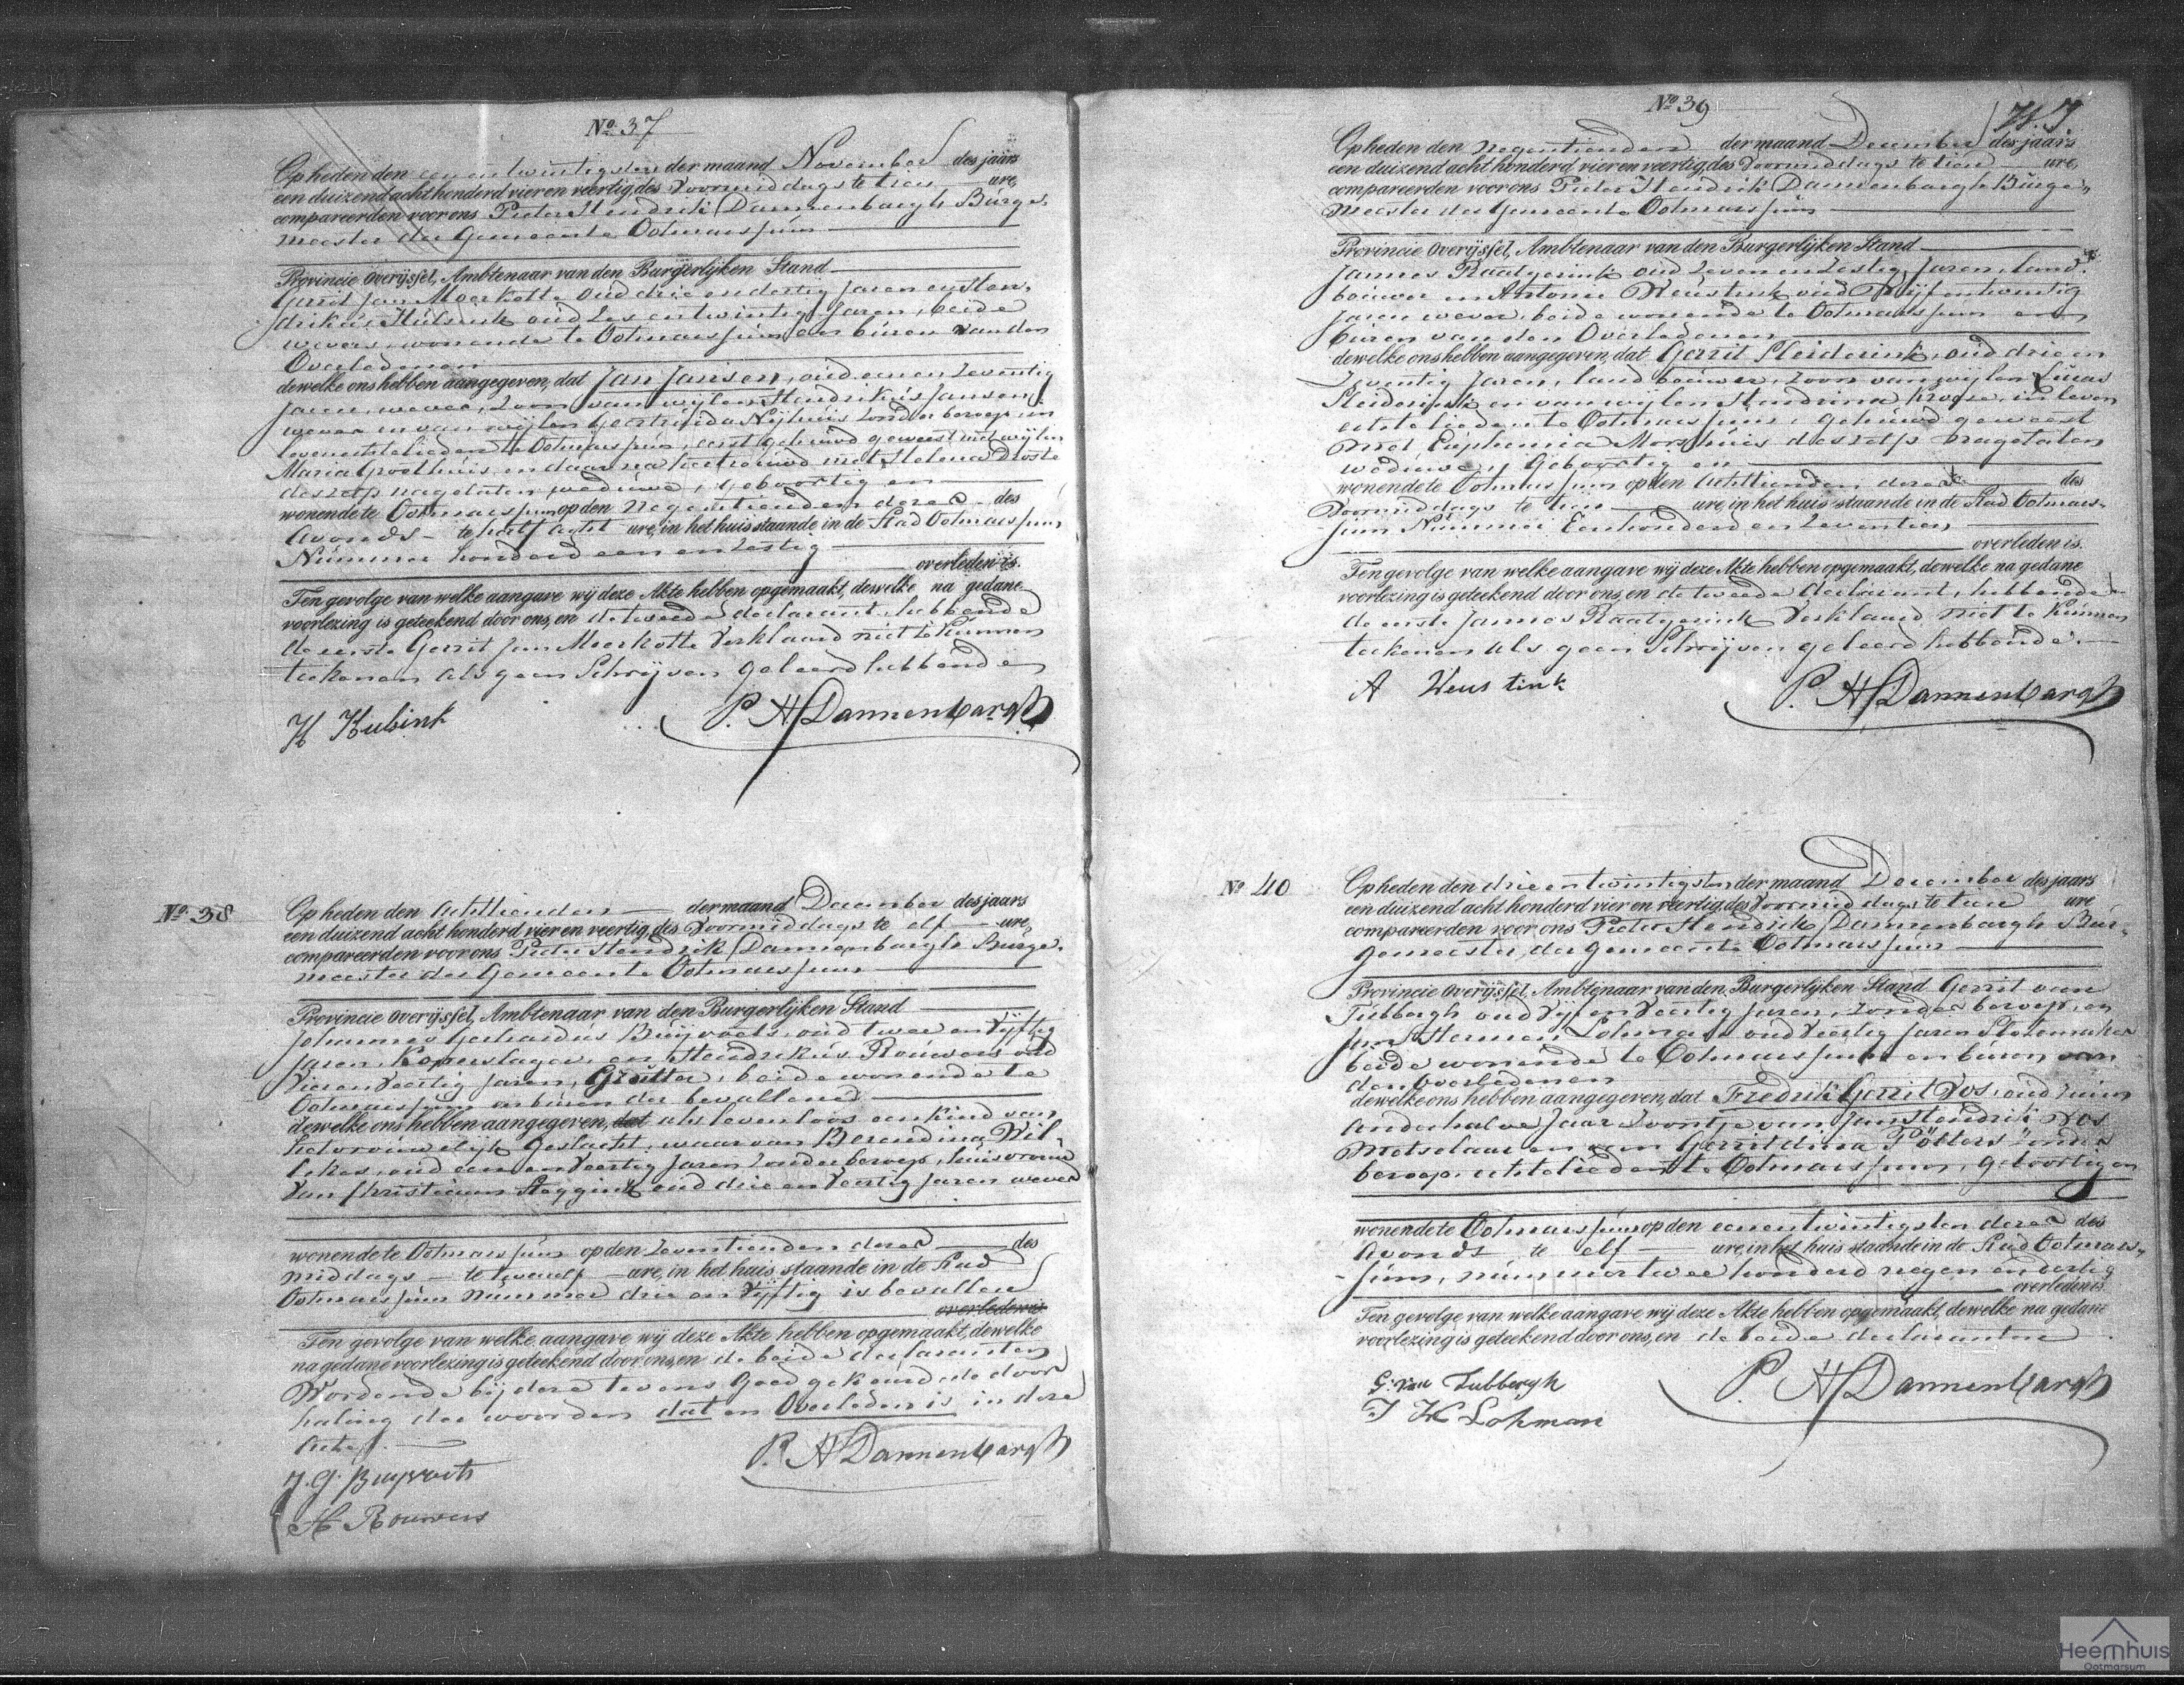 No. 37
Op heden den een en twintigsten der maand November des jaars
een duizend acht honderd vier en veertig, des Voormiddags te tien ure,
compareerden voor ons Pieter Hendrik Dannenbargh Burge-
meester der Gemeente Ootmarssum
Provincie Overijssel, Ambtenaar van den Burgerlijken Stand
Gerrit Jan Moerkotte oud drie en dertig Jaren en Hen-
drikus Hulsink oud zes en twintig Jaren, beide
wevers, wonende te Ootmarssum en buren van den
Overledenen
dewelke ons hebben aangegeven, dat Jan Jansen, oud een en zeventig
Jaren, wever, zoon van wijlen Hendrikus Jansen,
wever en van wijlen Geertruida Nijhuis zonder beroep, in
leven echtelieden te Ootmarssum, eerst gehuwd geweest met wijlen
Maria Groothuis, en daarna hertrouwd met Helena Droste
deszelfs nagelaten weduwe, geboortig en
wonende te Ootmarssum op den negentienden dezer des
Avonds te half acht ure, in het huis staande in de Stad Ootmarssum
Nummer honderd een en zestig
overleden is.
Ten gevolge van welke aangave wij deze Akte hebben opgemaakt, dewelke na gedane
voorlezing is geteekend door ons, en de tweede declarant, hebbende
de eerste Gerrit Jan Moerkotte Verklaard niet te kunnen
teekenen als geen Schrijven geleerd hebbende
H Hulsink P. H Dannenbargh
No. 38
Op heden den Achttienden der maand December des jaars
een duizend acht honderd vier en veertig, des Voormiddags te elf ure,
compareerden voor ons Pieter Hendrik Dannenbargh Burge-
meester der Gemeente Ootmarssum
Provincie Overijssel, Ambtenaar van den Burgerlijken Stand
Johannes Gerhardus Buijvoets, oud twee en Vijftig
Jaren, Koperslager, en Hendrikus Rouwers oud
Vier en Veertig Jaren, Grutter, beide wonende te
Ootmarssum en buren der bevallene
dewelke ons hebben aangegeven, dat als levenloos een kind van
het vrouwelijk Geslacht, waarvan Berendina Wil-
lekes, oud een en Veertig Jaren zonder beroep, huisvrouw
van Christiaan Steggink oud drie en Veertig Jaren wever
wonende te Ootmarssum op den zeventienden dezer des
middags te twaalf ure, in het huis staande in de Stad
Ootmarssum Nummer drie en Vijftig is bevallen
overleden is.
Ten gevolge van welke aangave wij deze Akte hebben opgemaakt, dewelke
na gedane voorlezing is geteekend door ons, en de beide declaranten
Wordende bij deze tevens Goed gekeurd de door
haling der woorden dat en Overleden is in deze
Acte.
J. G. Buijvoets P. H Dannenbargh
H Rouwers
No. 39
Op heden den negentienden der maand December des jaars
een duizend acht honderd vier en veertig, des Voormiddags te tien ure,
compareerden voor ons Pieter Hendrik Dannenbargh Burge-
meester der Gemeente Ootmarssum
Provincie Overijssel, Ambtenaar van den Burgerlijken Stand
Jannes Raatgerink oud zeven en zestig Jaren, land-
bouwer en Antonie Weustink oud Vijf en twintig
Jaren wever, beide wonende te Ootmarssum en
buren van den Overledenen
dewelke ons hebben aangegeven, dat Gerrit Sleiderink, oud drie en
zeventig Jaren, landbouwer, zoon van wijlen Lucas
Sleiderink en van wijlen Hendrina Kroeze, in leven
echtelieden te Ootmarssum, gehuwd geweest
met Euphemia Morshuis deszelfs nagelaten
weduwe, Geboortig en
wonende te Ootmarssum op den Achttienden dezer des
Voormiddags te tien ure, in het huis staande in de Stad Ootmars-
sum Nummer Eenhonderd en zeventien
overleden is.
Ten gevolge van welke aangave wij deze Akte hebben opgemaakt, dewelke na gedane
voorlezing is geteekend door ons, en de tweede declarant, hebbende
de eerste Jannes Raatgerink Verklaard niet te kunnen
teekenen als geen Schrijven geleerd hebbende.
A Weustink P. H Dannenbargh
No. 40
Op heden den drie en twintigsten der maand December des jaars
een duizend acht honderd vier en veertig, des Voormiddags te tien ure
compareerden voor ons Pieter Hendrik Dannenbargh Bur-
gemeester der Gemeente Ootmarssum
Provincie Overijssel, Ambtenaar van den Burgerlijken Stand Gerrit van
Tubbergh oud Vijf en Veertig Jaren, zonder beroep, en
Jan Herman Lohman oud Veertig Jaren Slotemaker
beide wonende te Ootmarssum en buren van
den Overledenen
dewelke ons hebben aangegeven, dat Fredrik Gerrit Vos, oud ruim
anderhalve Jaar Zoontje van Jan Hendrik Vos
metselaar en van Gerritdina Pötters zonder
beroep, echtelieden te Ootmarssum, geboortig en
wonende te Ootmarssum op den een en twintigsten dezer des
Avonds te elf ure, in het huis staande in de Stad Ootmars-
sum, nummer twee honderd negen en dertig
overleden is.
Ten gevolge van welke aangave wij deze Akte hebben opgemaakt, dewelke na gedane
voorlezing is geteekend door ons, en de beide declaranten
G. van Tubbergh P. H Dannenbargh
J H Lohman
Heemhuis
Ootmarsum